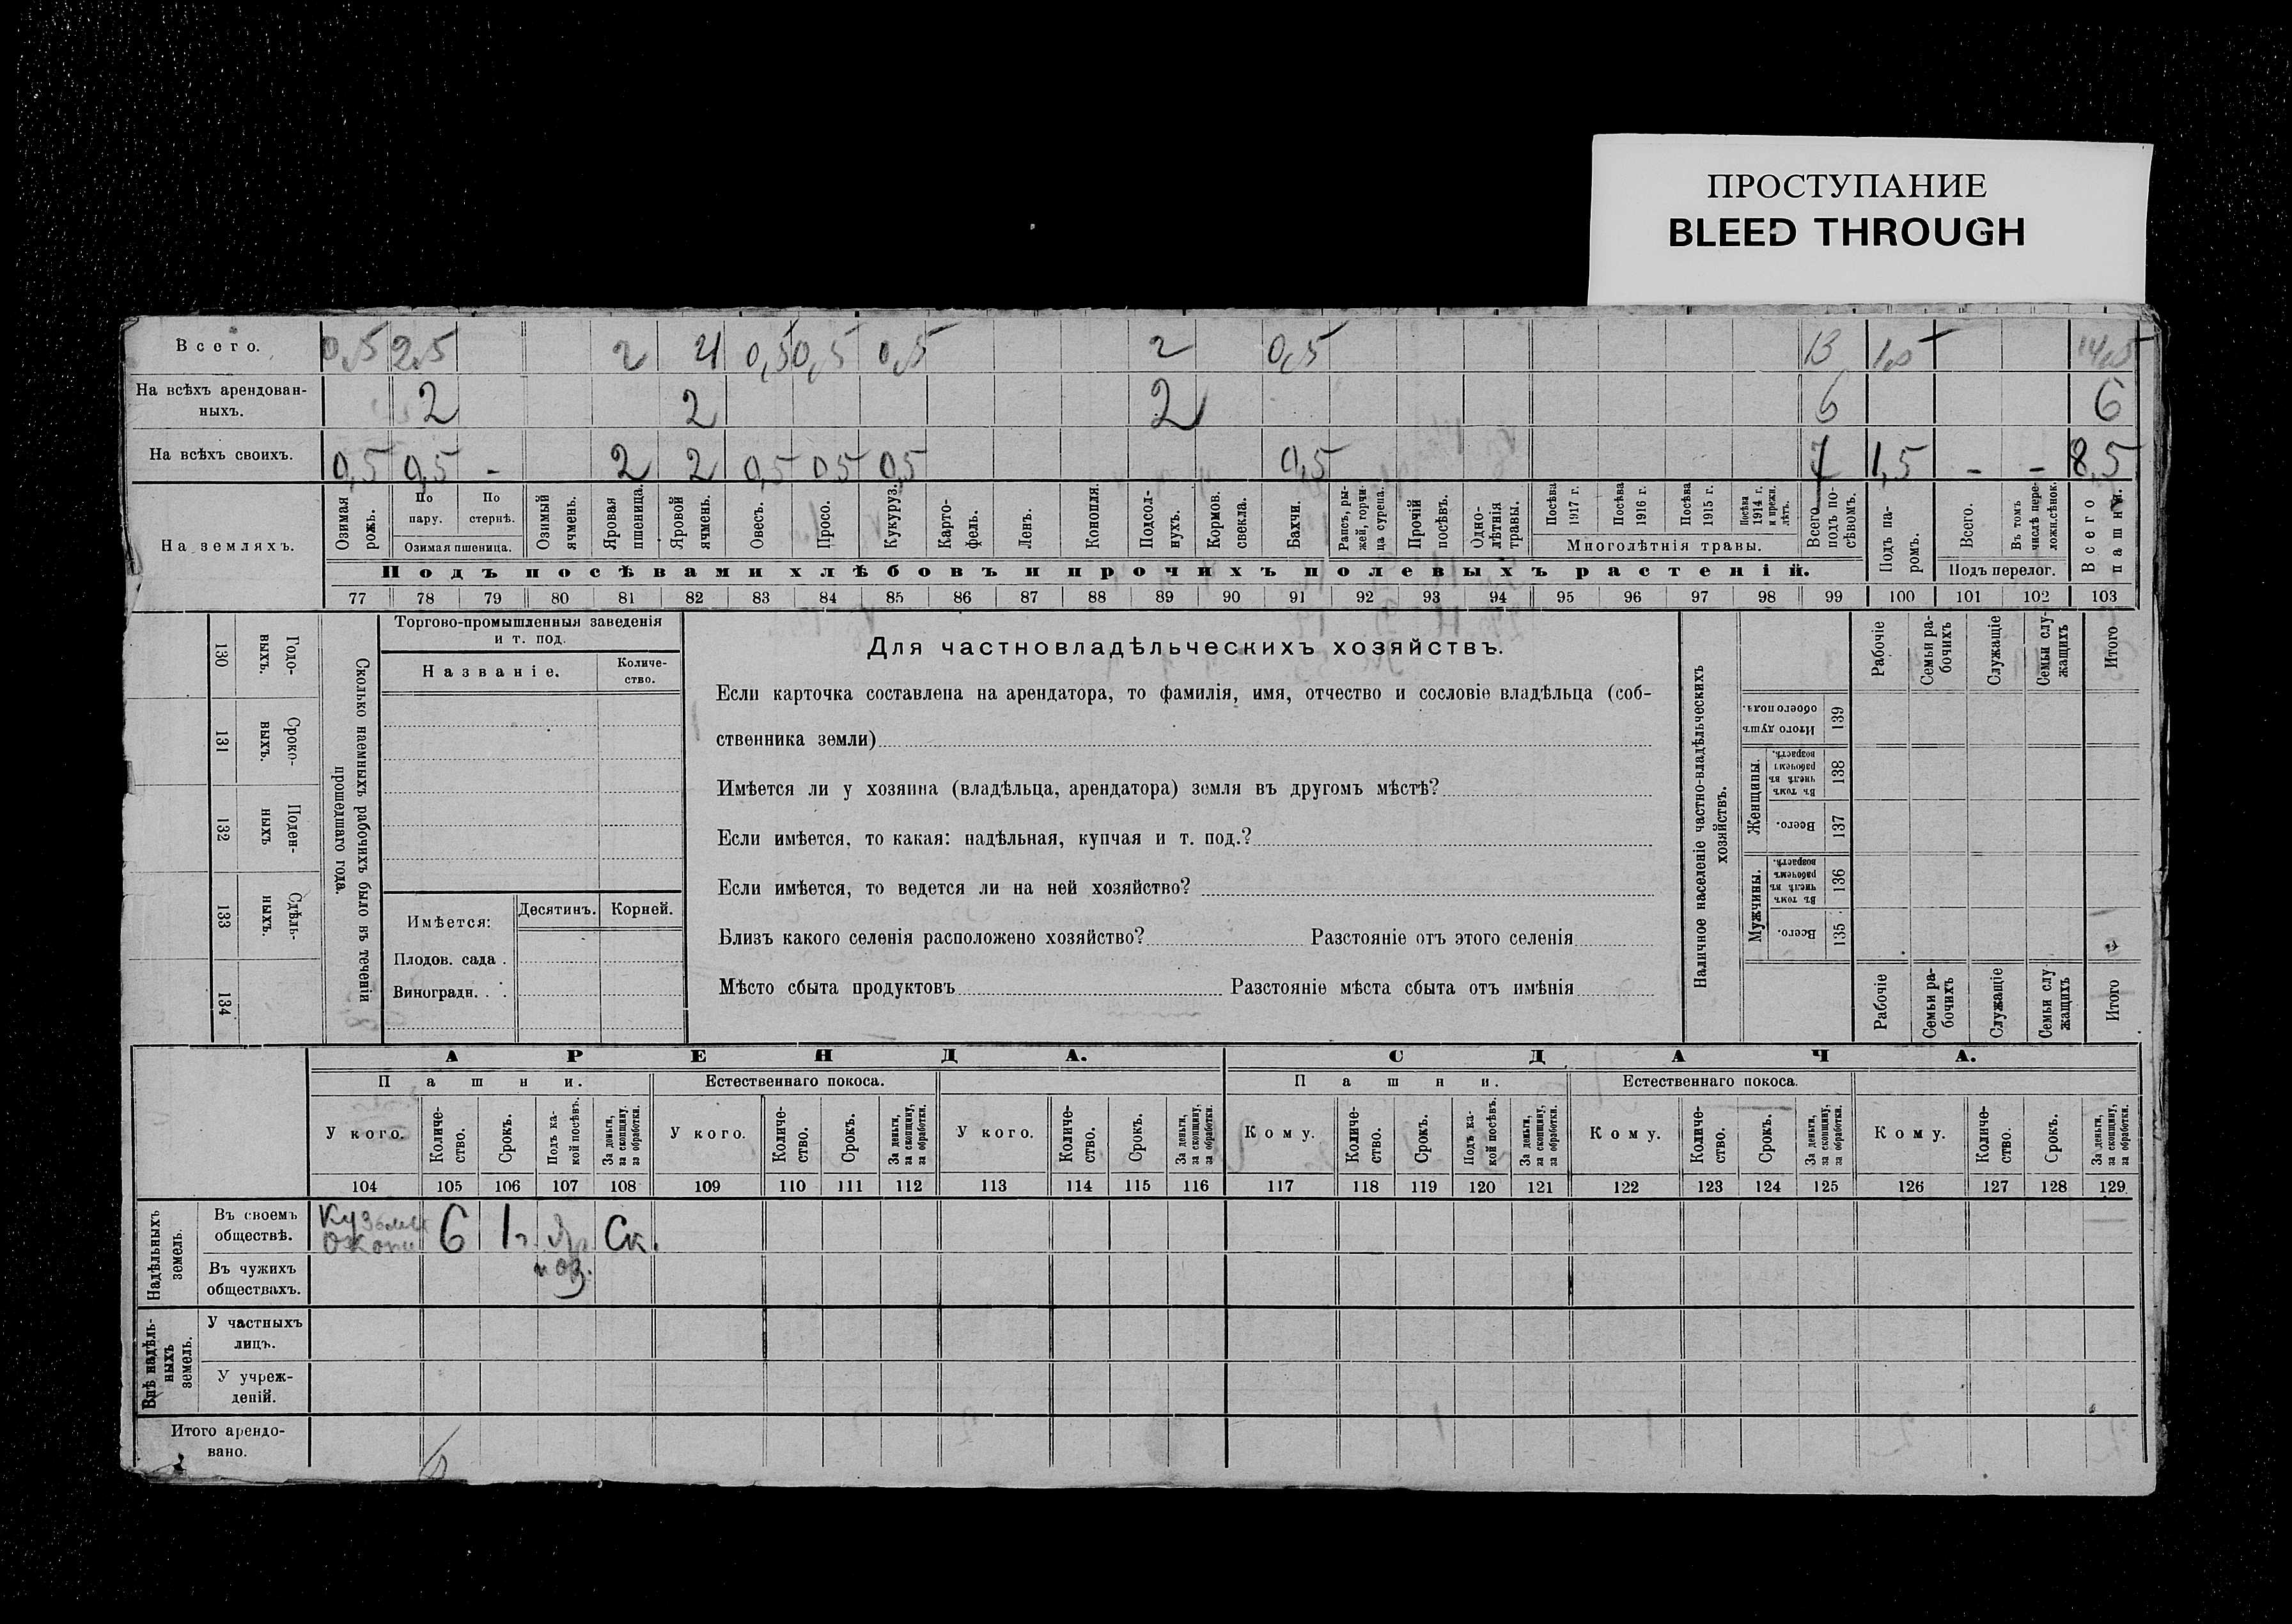 ПРОСТУПАНИЕ
BLEED THROUGH
Всего. 0,5 2,5 2 4 0,5 0,5 0,5 2 0,5 13 1,5 14,5
На всѣхъ арендован-
ныхъ. 2 2 2 6 6
На всѣхъ своихъ. 0,5 0,5 - 2 2 0,5 05 05 0,5 7 1,5 - - 8,5
На земляхъ.
Озимая рожь.
По пару.
По стернѣ.
Озимая пшеница.
Озимый ячмень.
Яровая пшеница.
Яровой ячмень.
Овесъ.
Просо.
Кукуруз.
Карто-
фель.
Ленъ.
Конопля.
Подсол-
нухъ.
Кормов.
свекла.
Бахчи.
Рапсъ, ры-
жей, горчи-
ца сурепа.
Прочій
посѣвъ.
Одно-
лѣтнія
травы.
Посѣва
1917 г.
Посѣва
1916 г.
Посѣва
1915 г.
Посѣва
1914 г.
и прежн.
лѣтъ.
Многолѣтнія травы.
Всего
подъ по-
сѣвомъ.
Подъ па-
ромъ.
Всего.
Въ томъ
числѣ пере-
ложн.сѣнок.
Подъ перелог.
Всего
пашни.
Подъ посѣвами хлѣбовъ и прочихъ полевыхъ растеній.
77 78 79 80 81 82 83 84 85 86 87 88 89 90 91 92 93 94 95 96 97 98 99 100 101 102 103
130 Годо-
выхъ.
131 Сроко-
выхъ.
132 Поден-
ныхъ
133 Сдѣль-
ныхъ.
134
Сколько наемныхъ рабочихъ было въ теченіи
прошедшаго года.
Торгово-промышленныя заведенія
и т. под.
Названіе.
Количе-
ство.
Имѣется:
Десятинъ.
Корней.
Плодов. сада .
Виноградн. . .
Для частновладѣльческихъ хозяйствъ.
Если карточка составлена на арендатора, то фамилія, имя, отчество и сословіе владѣльца (соб-
ственника земли)
Имѣется ли у хозяина (владѣльца, арендатора) земля въ другомъ мѣстѣ?
Если имѣется, то какая: надѣльная, купчая и т. под.?
Если имѣется, то ведется ли на ней хозяйство?
Близъ какого селенія расположено хозяйство? Разстояніе отъ этого селенія
Мѣсто сбыта продуктовъ Разстояніе мѣста сбыта отъ имѣнія
Наличное населеніе частно-владѣльческихъ
хозяйствъ.
Рабочіе
Семьи ра-
бочихъ
Служащіе
Семьи слу-
жащихъ
Итого
Итого душъ
обоего пола.
139
Женщины.
Въ томъ
числѣ въ
рабочемъ
возрастѣ.
138
Всего.
137
Мужчины.
Въ томъ
числѣ въ
рабочемъ
возрастѣ.
136
Всего.
135
Рабочіе
Семьи ра-
бочихъ
Служащіе
Семьи слу
жащихъ
Итого
АРЕНДА.
СДАЧА.
Пашни.
Естественнаго покоса.
Пашни.
Естественнаго покоса.
У кого.
Количе-
ство.
Срокъ.
Подъ ка-
кой посѣвъ.
За деньги,
за скопщину,
за обработки.
У кого.
Количе-
ство.
Срокъ.
За деньги,
за скопщину,
за обработки.
У кого.
Количе-
ство.
Срокъ.
За деньги,
за скопщину,
за обработки.
Кому.
Количе-
ство.
Срокъ.
Подъ ка-
кой посѣвъ.
За деньги,
за скопщину,
за обработки.
Кому.
Количе-
ство.
Срокъ.
За деньги,
за скопщину,
за обработки.
Кому.
Количе-
ство.
Срокъ.
За деньги,
за скопщину,
за обработки.
104 105 106 107 108 109 110 111 112 113 114 115 116 117 118 119 120 121 122 123 124 125 126 127 128 129
Надѣльныхъ
земель.
Въ своемъ
обществѣ. 6 1 Ск.
Въ чужихъ
обществахъ.
Внѣ надѣль-
ныхъ
земель.
У частныхъ
лицъ.
У учреж-
деній.
Итого арендо-
вано. 6